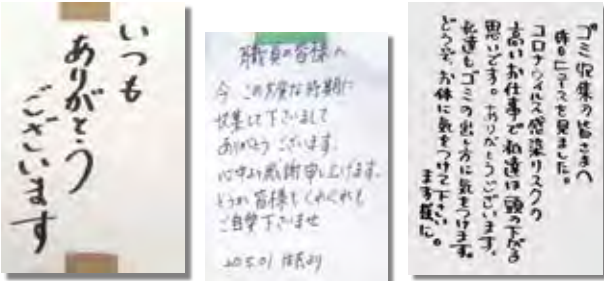 いつも
ありがとう
ございます
職員の皆様へ
今、この大変な時期に
収集して下さいまして
ありがとうございます。
心より感謝申し上げます。
どうか皆様もくれぐれも
ご自愛下さいませ
ゴミ収集の皆さまへ
ニュースを見ました。
コロナウイルス感染リスクの
高いお仕事で私達は頭の下がる
思いです。ありがとうございます。
私達もゴミの出し方に気をつけます。
どうぞ、お体に気をつけて下さい